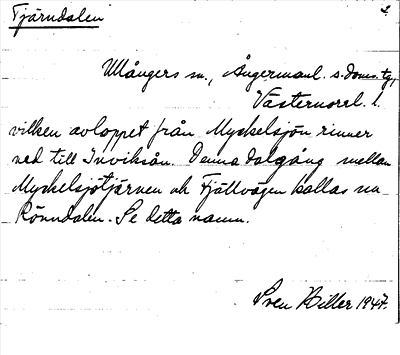 Tjärndalen
2.
Ullångers sn., Ångermanl. s. doms.tg.,
Västernorrl. l.
vilken avloppet från Myckelsjön rinner
ned till Inviksån. Denna dalgång mellan
Myckelsjötjärnen och Fjällvägen kallas nu
Rönndalen. Se detta namn.
Sven Hiller 1947.